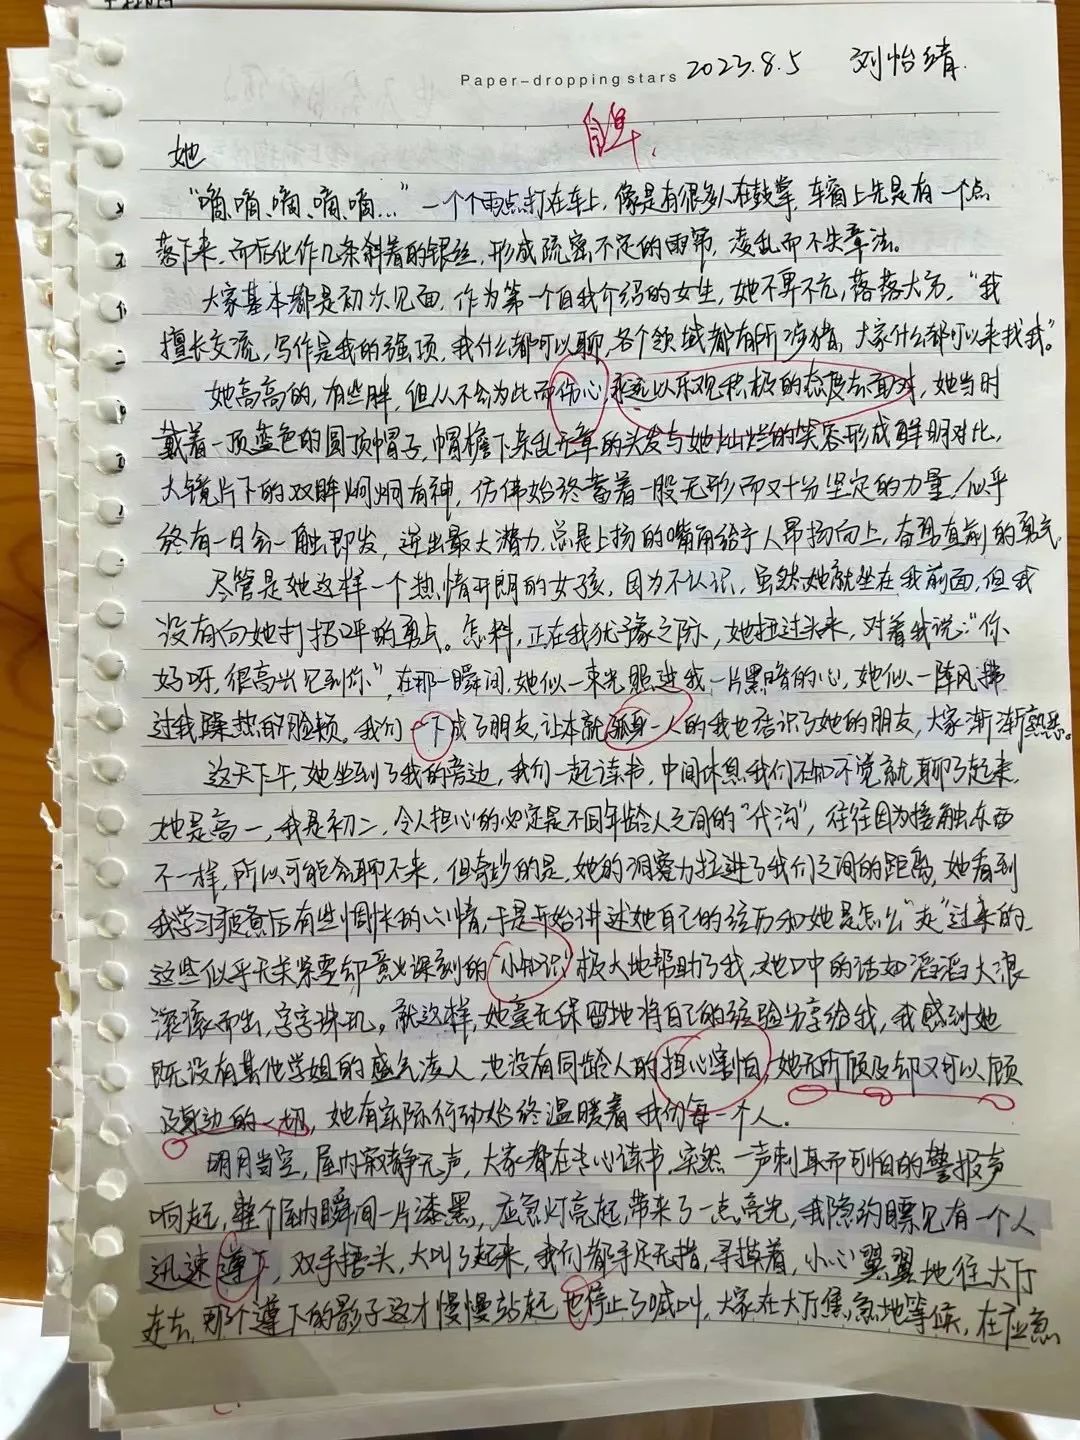 Paper-dropping stars 2023.8.5 刘怡靖.
自卑.
她
“嘀、嘀、嘀、嘀、嘀…”一个个雨点打在车上，像是有很多人在鼓掌，车窗上先是有一个点
落下来，而后化作几条斜着的银丝，形成疏密不定的雨帘，凌乱而不失章法。
大家基本都是初次见面，作为第一个自我介绍的女生，她不卑不亢，落落大方，“我
擅长交流，写作是我的强项，我什么都可以聊，各个领域都有所涉猎，大家什么都可以来找我”。
她高高的，有些胖，但从不会为此而伤心，永远以乐观积极的态度去面对，她当时
戴着一顶蓝色的圆顶帽子，帽檐下杂乱无章的头发与她灿烂的笑容形成鲜明对比，
大镜片下的双眸炯炯有神，仿佛始终蓄着一股无形而又十分坚定的力量，似乎
终有一日会一触即发，迸出最大潜力，总是上扬的嘴角给予人昂扬向上，奋勇直前的勇气，
尽管是她这样一个热情开朗的女孩，因为不认识，虽然她就坐在我前面，但我
没有向她打招呼的勇气。怎料，正在我犹豫之际，她扭过头来，对着我说：“你
好呀，很高兴见到你”，在那一瞬间，她似一束光照进我一片黑暗的心，她似一阵风拂
过我躁热的脸颊。我们一下成了朋友，让本就孤身一人的我也结识了她的朋友，大家渐渐熟悉。
这天下午，她坐到了我的旁边，我们一起读书，中间休息我们不知不觉就聊了起来，
她是高一，我是初二，令人担心的必定是不同年龄人之间的“代沟”，往往因为接触东西
不一样，所以可能会聊不来，但奇妙的是，她的洞察力拉进了我们之间的距离，她看到
我学习疲惫后有些惆怅的心情，于是开始讲述她自己的经历和她是怎么“走”过来的，
这些似乎无关紧要却意义深刻的“小知识”极大地帮助了我，她口中的话如滔滔大浪
滚滚而出，字字珠玑。就这样，她毫无保留地将自己的经验分享给我，我感到她
既没有其他学姐的盛气凌人，也没有同龄人的担心害怕，她无所顾及却又可以顾
及身边的一切，她有实际行动始终温暖着我们每一个人.
明月当空，屋内寂静无声，大家都在专心读书，突然一声刺耳而可怕的警报声
响起，整个屋内瞬间一片漆黑，应急灯亮起，带来了一点亮光，我隐约瞟见有一个人
迅速蹲下，双手捂头，大叫了起来，我们都手足无措，寻摸着，小心翼翼地往大厅
走去，那个蹲下的影子这才慢慢站起，也停止了喊叫，大家在大厅焦急地等候，在应急